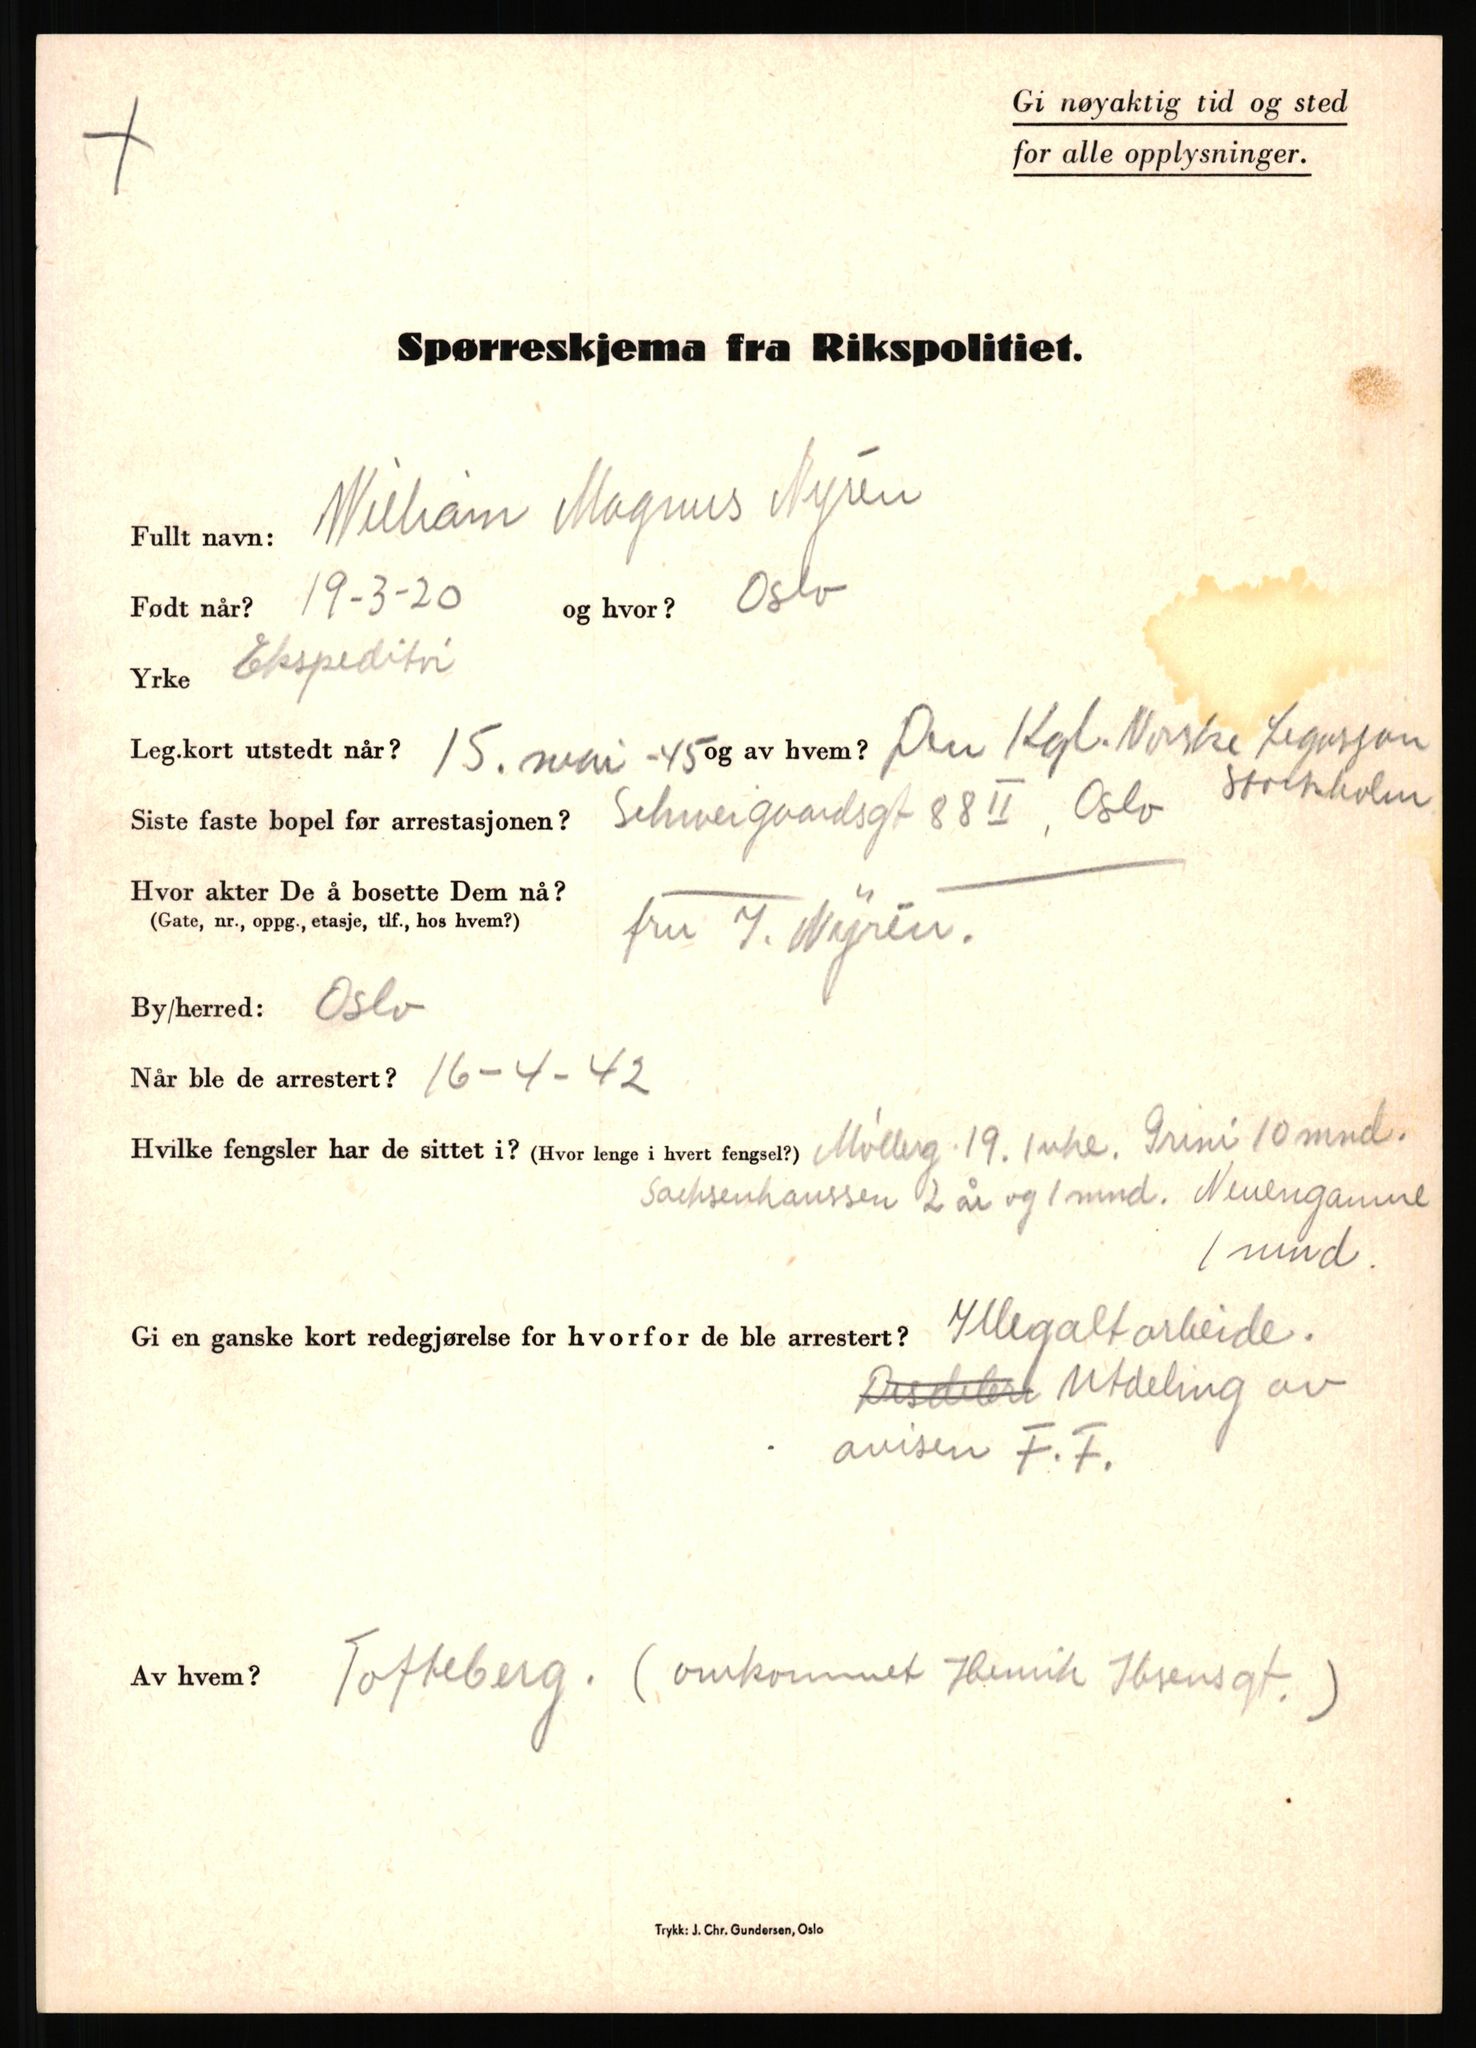 Gi nøyaktig tid og sted
for alle opplysninger.
Spørreskjema fra Rikspolitiet.
Fullt navn: William Magnus Nyrén
Født når? 19-3-20 og hvor? Oslo
Yrke Ekspeditør
Leg.kort utstedt når? 15. mai -45 og av hvem? Den Kgl. Norske Legasjon
Stockholm
Siste faste bopel før arrestasjonen? Schweigaardsgt 88 II, Oslo
Hvor akter De å bosette Dem nå?
(Gate, nr., oppg., etasje, tlf., hos hvem?) fru I. Nyrén.
By/herred: Oslo
Når ble de arrestert? 16-4-42
Hvilke fengsler har de sittet i? (Hvor lenge i hvert fengsel?) Møllerg. 19. 1 uke. Grini 10 mnd.
Sachsenhaussen 2 år og 1 mnd. Neuengamme
1 mnd.
Gi en ganske kort redegjørelse for hvorfor de ble arrestert? Illegalt arbeide.
Utdeling av
avisen F.F.
Av hvem? Tofteberg. (omkommet Henrik Ibsensgt.)
Trykk: J. Chr. Gundersen, Oslo